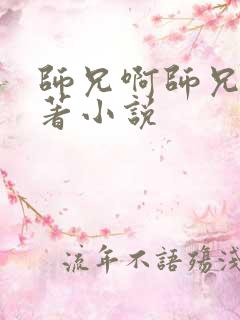 師兄啊師兄
著小説
流年不語殤淺